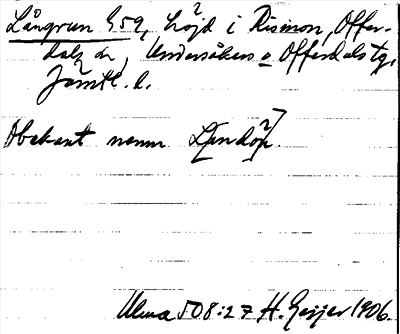 Långrun S59, höjd i Rismon, Offer-
dals sn, Undersåkers o Offerdals tg,
Jämtl. l.
Obekant namn L[andön].
Ulma 508:27 H. Geijer 1906.